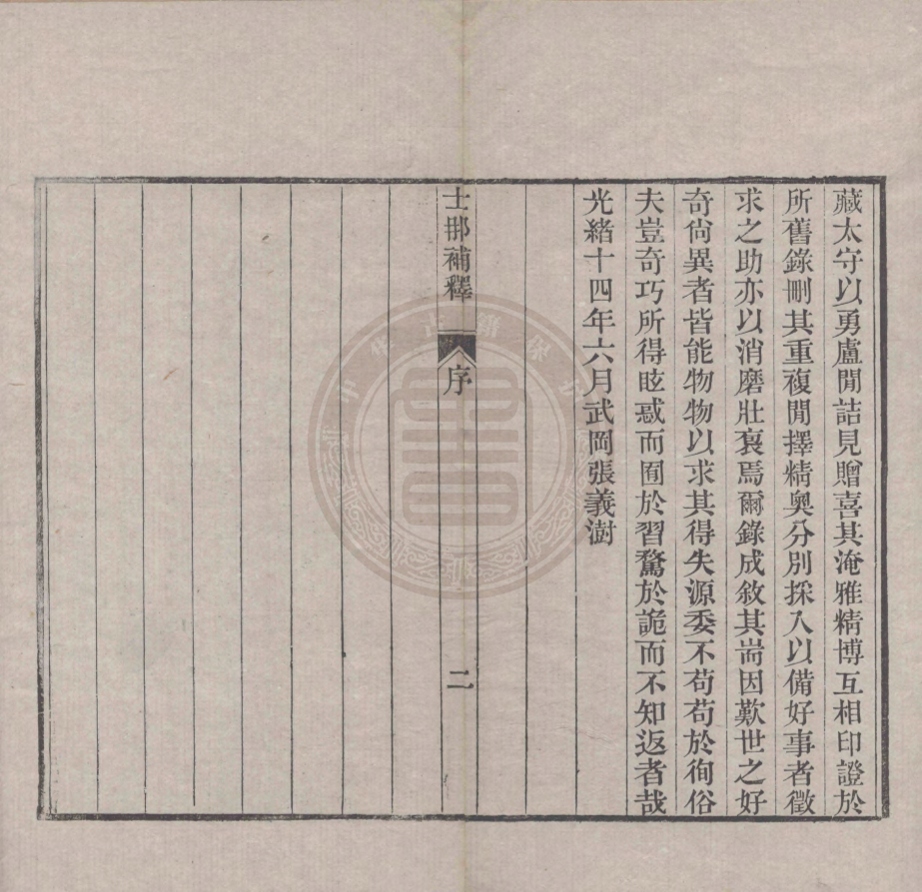 藏太守以勇盧閒詰見贈喜其淹雅精博互相印證於
所舊錄刪其重複閒擇精奧分別採入以備好事者徵
求之助亦以消磨壯襄焉爾錄成敘其耑因歎世之好
奇尙異者皆能物物以求其得失源委不苟苟於徇俗
夫豈奇巧所得眩惑而囿於習騖於詭而不知返者哉
光緒十四年六月武岡張義澍
士那補釋
序
二